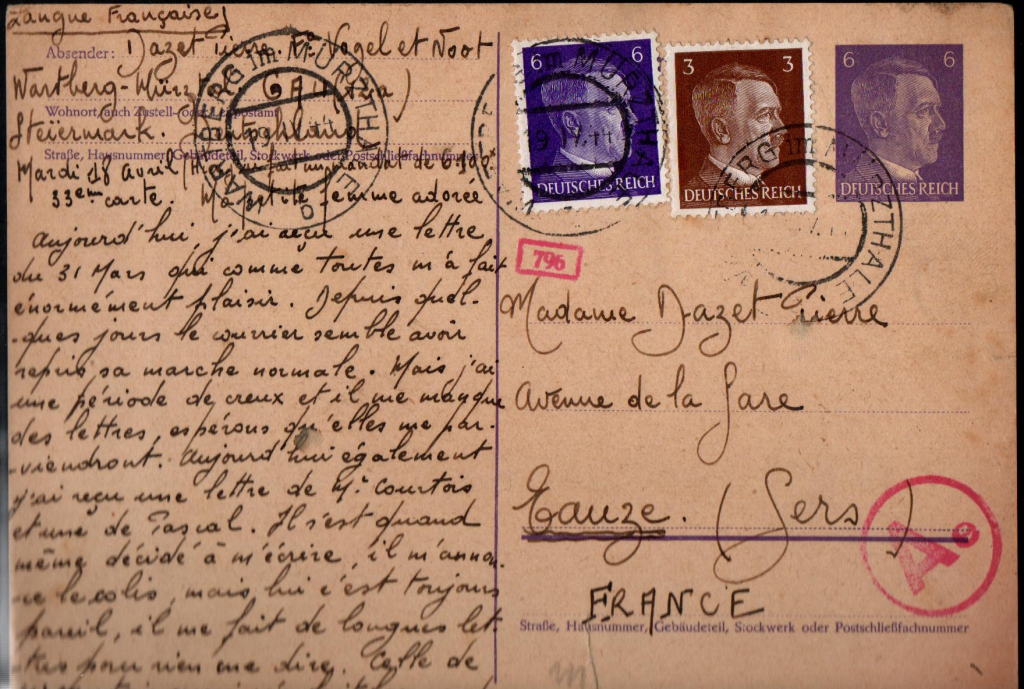 Langue Française
Absender: Dazet Pierre. Vogel et Noot
Wartberg-Mürztal
Wohnort, auch Zustell- oder Leitpostamt
Steiermark.
Straße, Hausnummer, Gebäudeteil, Stockwerk oder Postschließfachnummer
Mardi 18 Avril
33em carte. Ma petite femme adorée
Aujourd'hui, j'ai reçu une lettre
du 31 Mars qui comme toutes m'a fait
énormément plaisir. Depuis quel-
-ques jours le courrier semble avoir
repris sa marche normale. Mais j'ai
une période de creux et il me manque
des lettres, espérons qu'elles me par-
-viendront. Aujourd'hui également
j'ai reçu une lettre de Mr Courtois
et une de Pascal. Il s'est quand
même décidé à m'écrire, il m'annon-
-ce le colis, mais lui c'est toujours
pareil, il me fait de longues let-
-tres pour rien me dire. Celle de
6 6
DEUTSCHES REICH
3 3
DEUTSCHES REICH
6 6
DEUTSCHES REICH
WARTBERG im MÜRZTHALE
796
Madame Dazet Pierre
Avenue de la Gare
Eauze. (Gers)
FRANCE
Ae
Straße, Hausnummer, Gebäudeteil, Stockwerk oder Postschließfachnummer